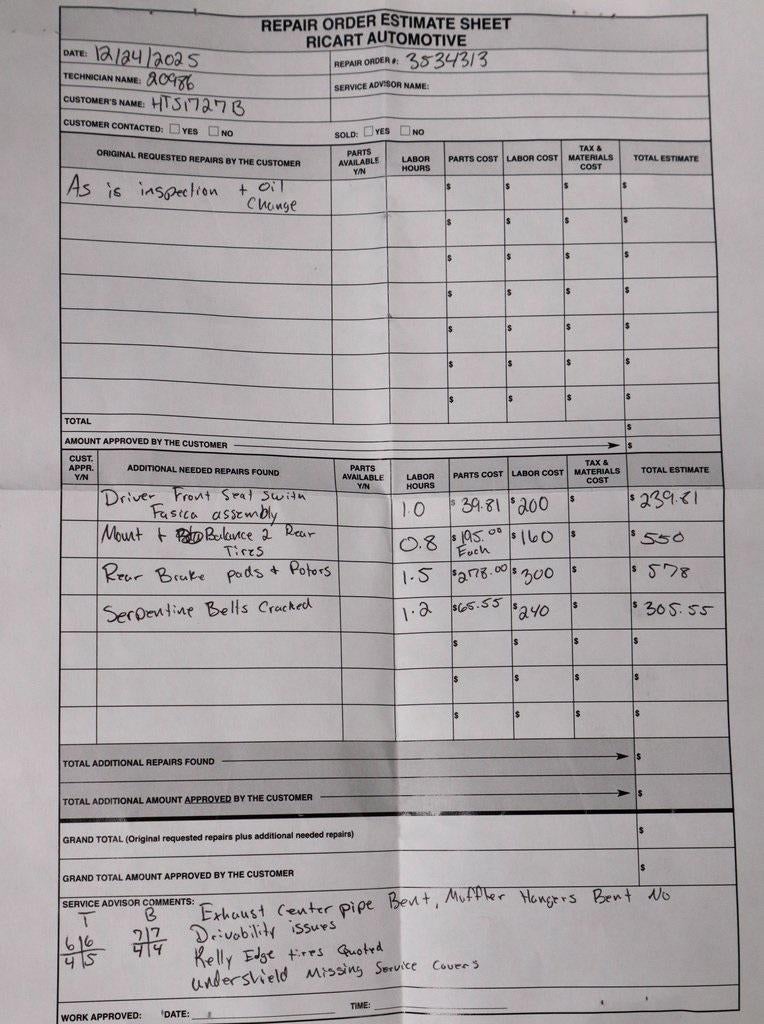 REPAIR ORDER ESTIMATE SHEET
RICART AUTOMOTIVE
DATE: 12/24/2025
REPAIR ORDER #: 3534313
TECHNICIAN NAME: 20986
SERVICE ADVISOR NAME:
CUSTOMER'S NAME: HTS1727B
CUSTOMER CONTACTED: ☐ YES ☐ NO
SOLD: ☐ YES ☐ NO
ORIGINAL REQUESTED REPAIRS BY THE CUSTOMER PARTS AVAILABLE Y/N LABOR HOURS PARTS COST LABOR COST TAX & MATERIALS COST TOTAL ESTIMATE
As is inspection + Oil $ $ $ $
Change
$ $ $ $
$ $ $ $
$ $ $ $
$ $ $ $
$ $ $ $
$ $ $ $
TOTAL $
AMOUNT APPROVED BY THE CUSTOMER $
CUST. APPR. Y/N ADDITIONAL NEEDED REPAIRS FOUND PARTS AVAILABLE Y/N LABOR HOURS PARTS COST LABOR COST TAX & MATERIALS COST TOTAL ESTIMATE
Driver Front Seat 1.0 $39.81 $200 $ $239.81
assembly
Mount + Balance 2 Rear 0.8 $195.00 $160 $ $550
Tires Each
Rear Brake pads + Rotors 1.5 $278.00 $300 $ $578
Serpentine Belts Cracked 1.2 $65.55 $240 $ $305.55
$ $ $ $
$ $ $ $
$ $ $ $
TOTAL ADDITIONAL REPAIRS FOUND $
TOTAL ADDITIONAL AMOUNT APPROVED BY THE CUSTOMER $
GRAND TOTAL (Original requested repairs plus additional needed repairs) $
GRAND TOTAL AMOUNT APPROVED BY THE CUSTOMER $
SERVICE ADVISOR COMMENTS: Exhaust Center pipe Bent, Muffler Hangers Bent No
T B Drivability issues
6|6 7|7 Kelly Edge tires Quoted
4|5 4|4 undershield Missing Service Covers
WORK APPROVED: DATE: TIME: